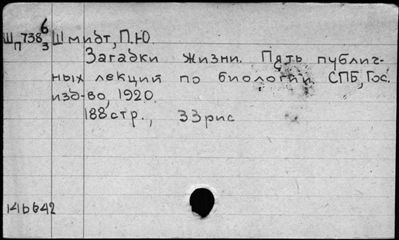 Ш 738 6/3 Шмидт, П.Ю.
П
Загадки жизни. Пять публич-
ных лекций по биологии. СПБ, Гос.
изд-во, 1920.
188 стр., 33 рис
146642